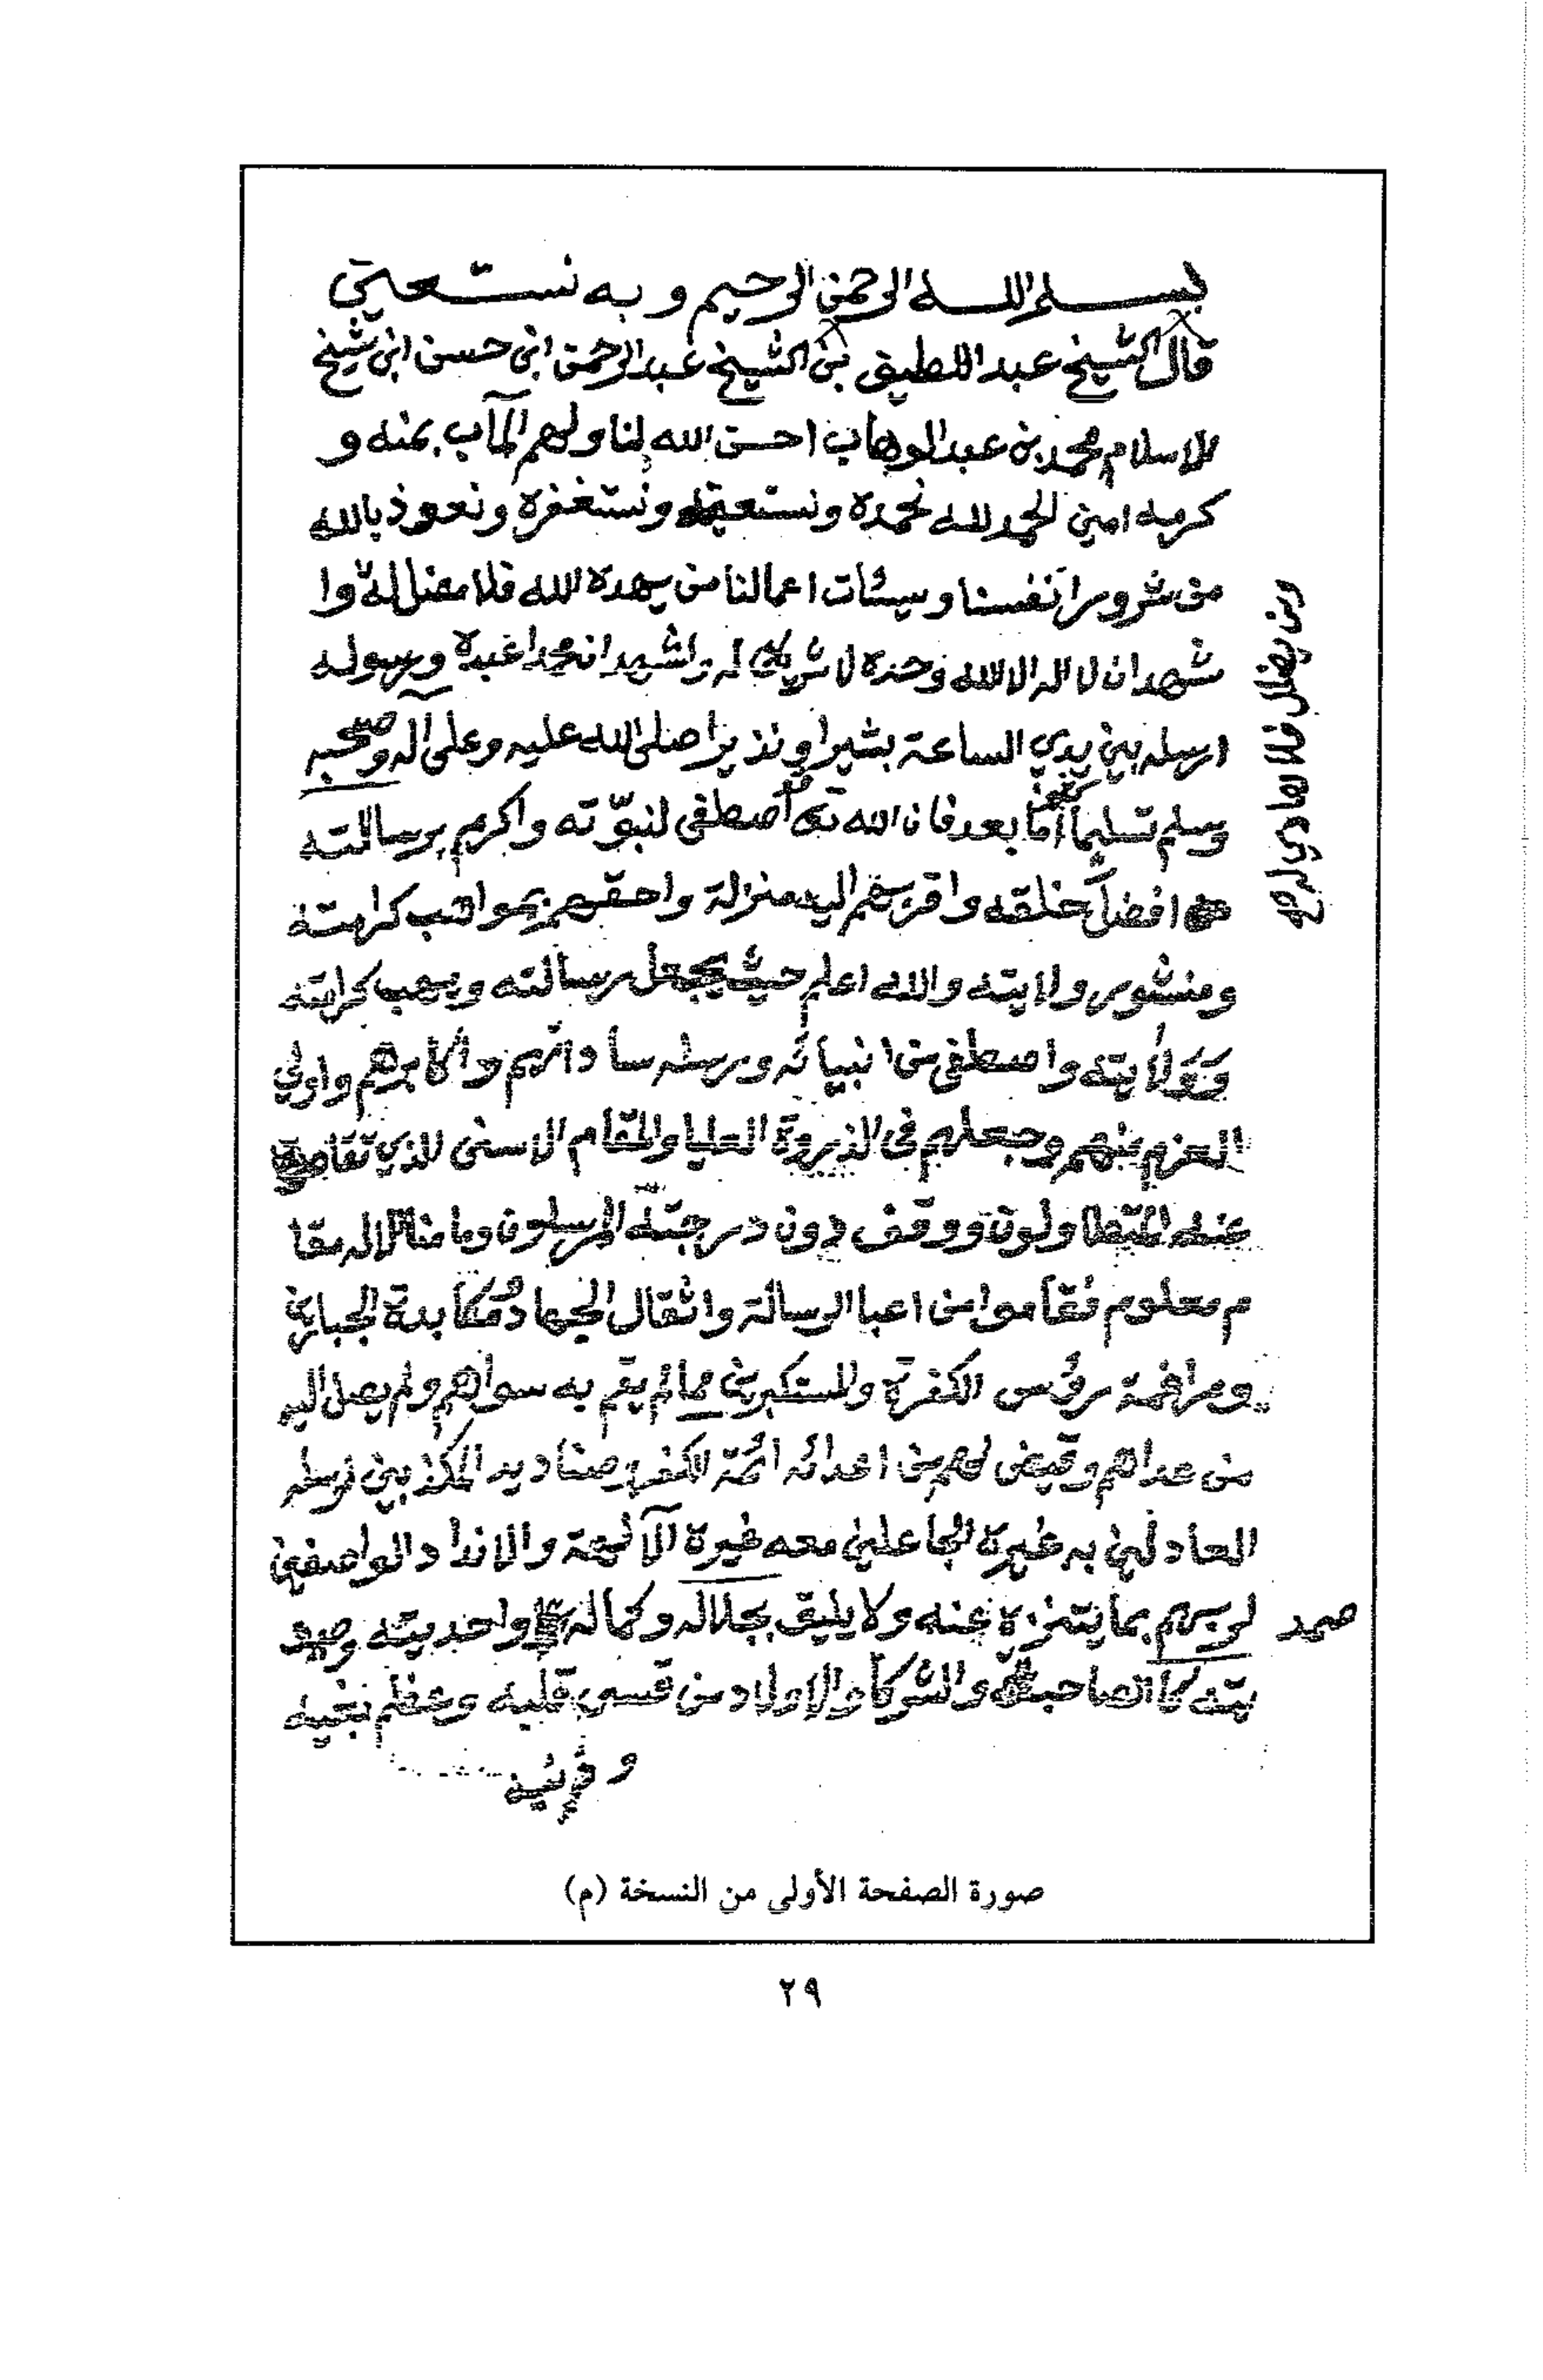 بسم الله الرحمن الرحيم وبه نستعين
قال الشيخ عبد اللطيف بن الشيخ عبد الرحمن ابن حسن ابن شيخ
الاسلام محمد بن عبد الوهاب احسن الله لنا ولهم المآب بمنه و
كرمه امين الحمد لله نحمده ونستعينه ونستغفره ونعوذ بالله
من شرور انفسنا وسيئات اعمالنا من يهده الله فلا مضل له وا
شهد ان لا اله الا الله وحده لا شريك له واشهد ان محمدا عبده ورسوله
ارسله بين يدي الساعة بشيرا ونذيرا صلى الله عليه وعلى اله وصحبه
وسلم تسليما اما بعد فان الله اصطفى لنبوّته واكرم برسالته
افضل خلقه واقربهم اليه منزلة واحقهم بمواهب كرامته
ومنشور ولايته والله اعلم حيث يجعل رسالته ويهب كرامته
وولايته واصطفى من انبيائه ورسله ساداتهم واكابرهم واولي
العزم منهم وجعلهم في الذروة العليا والمقام الاسنى الذي تقاصر
عنه المتطاولون ووقف دون درجته المرسلون وما منا الا له مقا
م معلوم فقاموا من اعبا الرسالة واثقال الجهاد ومكابدة الجبابرة
ومراغمة رؤس الكفرة والمستكبرين ما لم يقم به سواهم ولم يصل اليه
من عداهم وقيض لهم من اعدائه ائمة الكفر وصناديد المكذبين لرسله
العادلين به غيره الجاعلين معه غيره الآلهة والانداد الواصفين
لربهم بما يتنزه عنه ولا يليق بجلاله وكماله واحديته وصمد
يته كالصاحبة والشركا والاولاد من قسى قلبه وعظم
و
ومن يضلل فلا هادي له صح
صمد
صورة الصفحة الأولى من النسخة (م)
٢٩